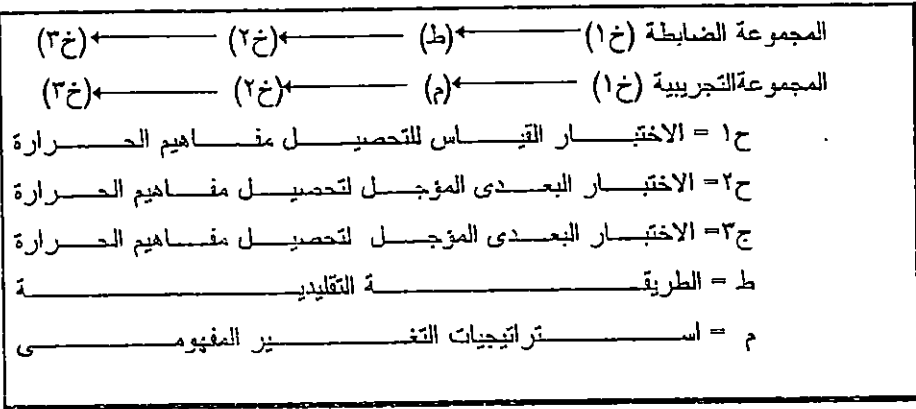 المجموعة الضابطة (خ١) ← (ط) ← (خ٢) ← (خ٣)
المجموعةالتجريبية (خ١) ← (م) ← (خ٢) ← (خ٣)
ح١ = الاختبار القياس للتحصيل مفاهيم الحرارة
ح٢= الاختبار البعدى المؤجل لتحصيل مفاهيم الحرارة
ج٣= الاختبار البعدى المؤجل لتحصيل مفاهيم الحرارة
ط = الطريقة التقليدية
م = استراتيجيات التغير المفهومى